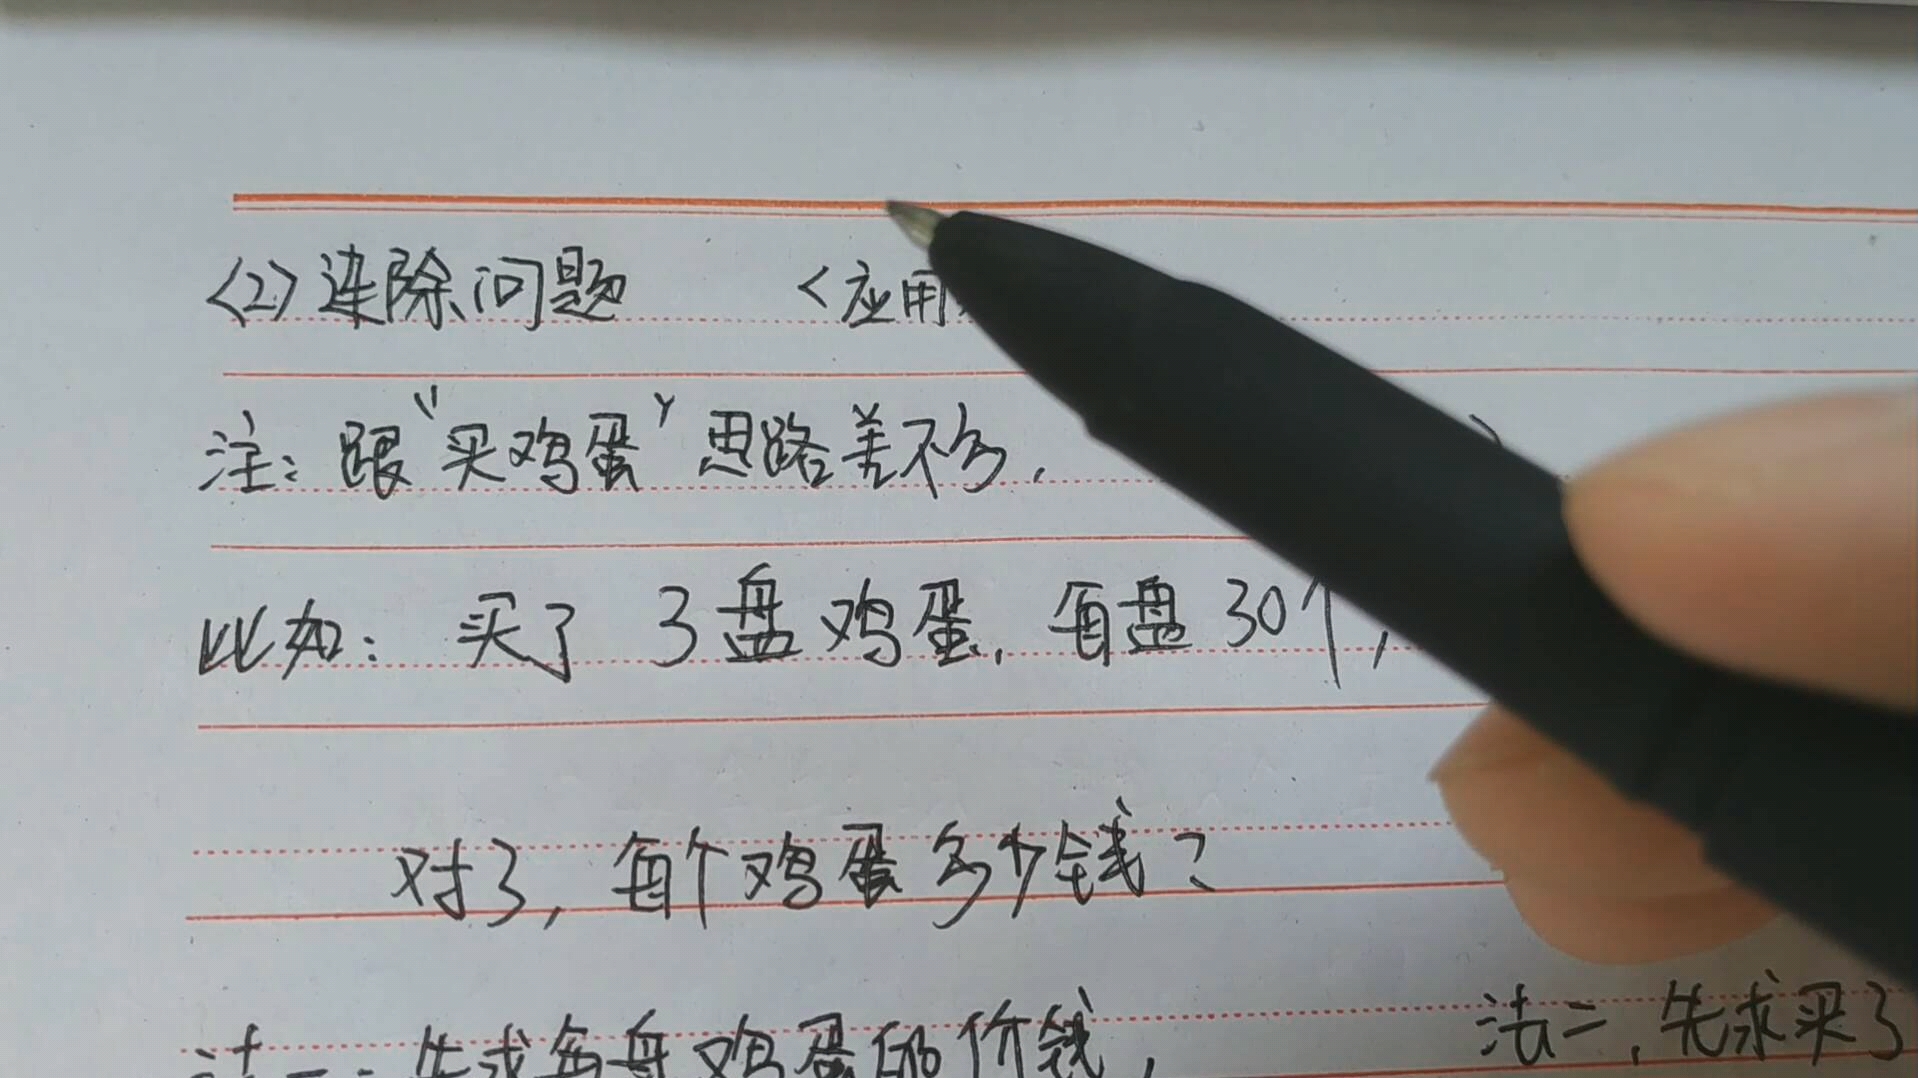 <2>连除问题 <应用
注：跟“买鸡蛋”思路差不多.
比如：买了 3盘鸡蛋, 每盘30个,
对了, 每个鸡蛋多少钱?
法一：先求每盘鸡蛋的价钱, 法二, 先求买了